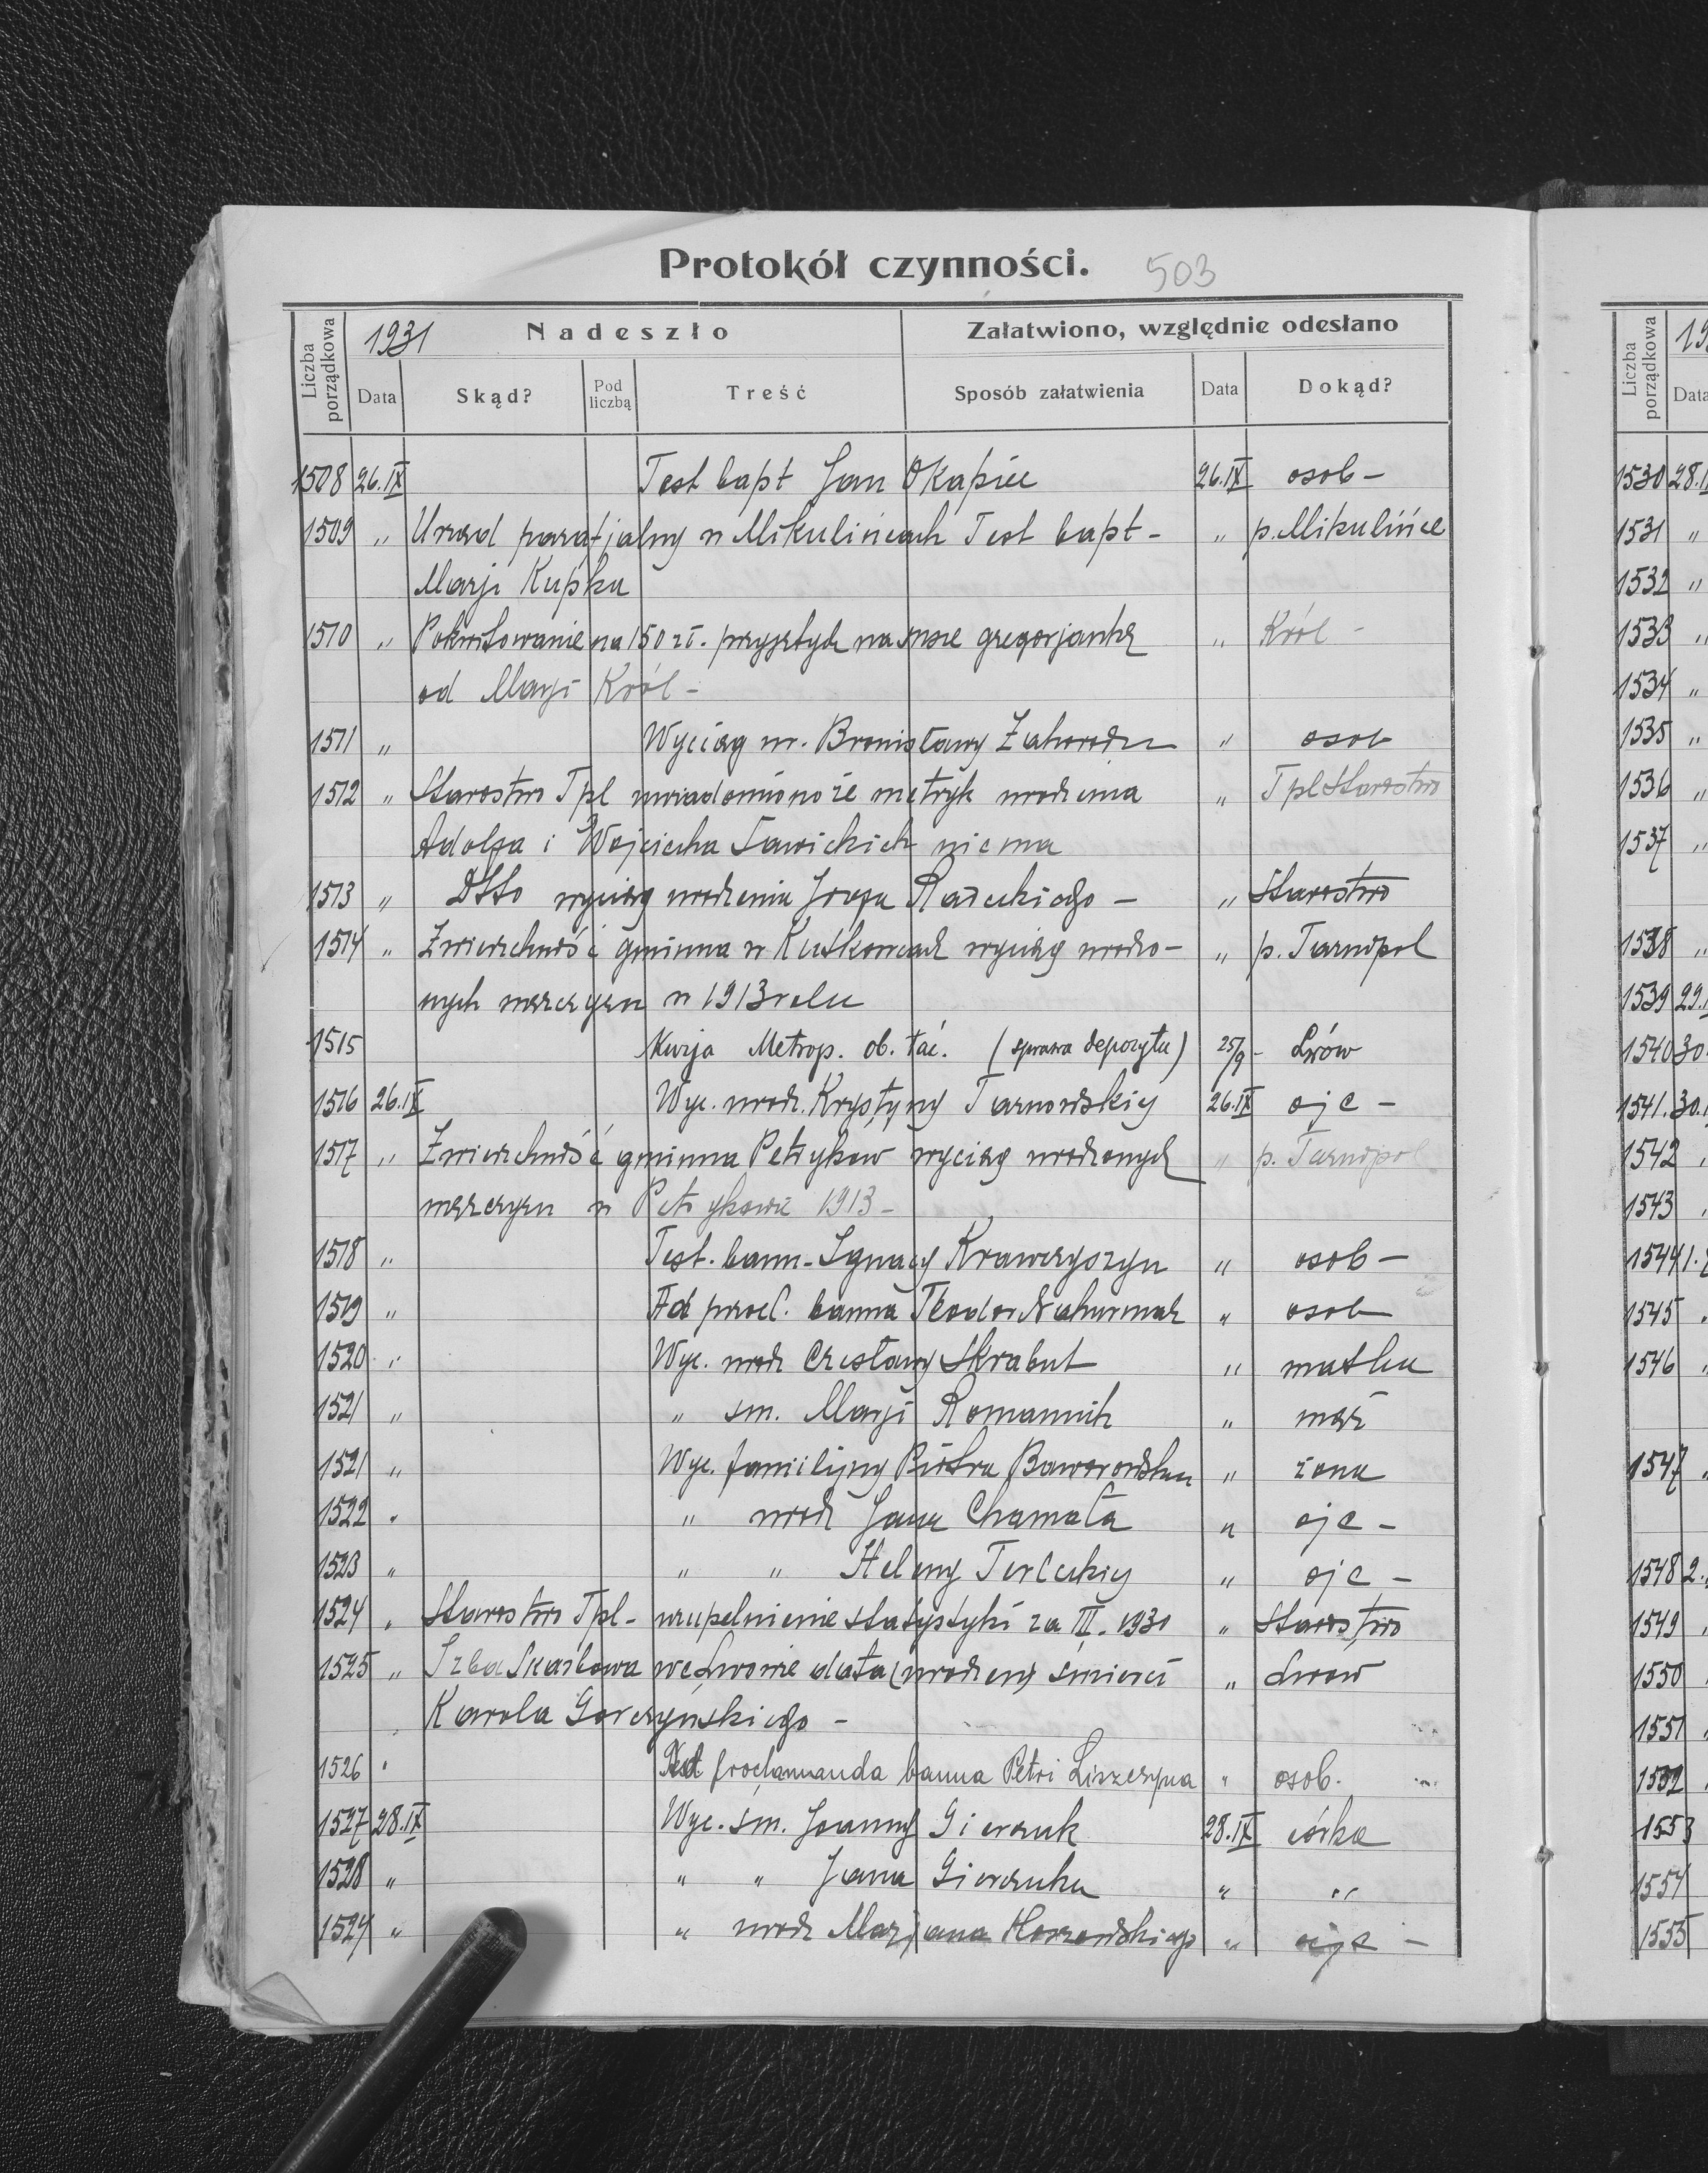 Protokół czynności. 503
Liczba porządkowa 1931 Nadeszło Załatwiono, względnie odesłano
Data Skąd? Pod liczbą Treść Sposób załatwienia Data Dokąd?
1508 26.IX Test bapt Jan Okapiec 26.IX osob -
1509 " Urząd parafjalny w Mikulińcach Test bapt - " p. Mikulińce
Marji Kupka
1510 " Pokwitowanie na 150 zł. przyjętych na msze gregorjankę " Król -
od Marji Król -
1511 " Wyciąg ur. Bronisławy " osob
1512 " Starostwo Tpl uwiadomiono że metryk urodzenia " Tpl Starostwo
Adolfa i Wojciecha Sawickich niema
1513 " Dtto wyciąg urodzenia Józefa - " Starostwo
1514 " Zwierzchność gminna w Kutkowcach wyciąg urodzo- " p. Tarnopol
nych mężczyzn w 1913 roku
1515 Kurja Metrop. ob. łać. (sprawa depozytu) 25/9 - Lwów
1516 26.IX Wyc. urodz. Krystyny Tarnowskiej 26.IX ojc -
1517 " Zwierzchność gminna Petryków wyciąg urodzonych " p. Tarnopol
mężczyzn w Petrykowie 1913 -
1518 " Test. bann - Ignacy Krawczyszyn " osob -
1519 " Ad procl. banna Teodor " osob
1520 " Wyc. urodz Czesławy Skrabut " matka
1521 " " śm. Marji Romannik " mąż
1521 " Wyc. familijny Piotra " żona
1522 " " urodz Jana Chamała " ojc -
1523 " " " Heleny Terleckiej " ojc -
1524 " Starostwo Tpl - uzupełnienie statystyki za III. 1930 " Starostwo
1525 " Izba Skarbowa we Lwowie data urodzeny śmierci " Lwow
Karola Gorczyńskiego -
1526 " proclamanda banna Petri Liszczyna " osob.
1527 28.IX Wyc. śm. Joanny Gierczuk 28.IX córka
1528 " " " Jana Gierczuka " "
1524 " " urodz Marjana " ojc -
Liczba porządkowa 19
Data
1530 28.I
1531 "
1532 "
1533 "
1534 "
1535 "
1536 "
1537 "
1538 "
1539 29.
1540 30
1541. 30.
1542
1543
1544 1.
1545
1546
1547
1548 2.
1549
1550
1551
1552
1553
1554
1555